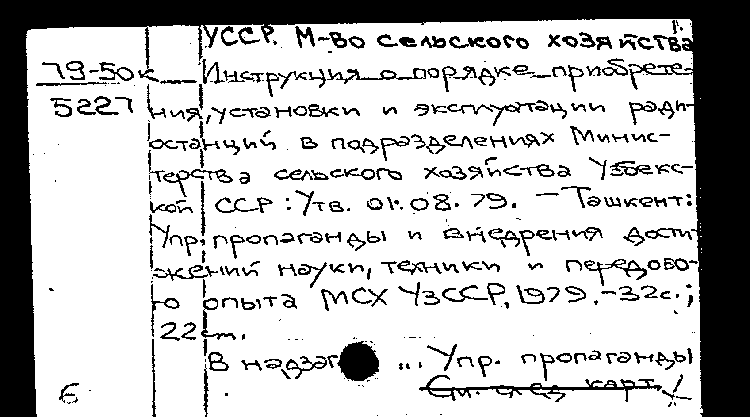 УССР. М-во сельского хозяйства
79-50к Инструкция о порядке приобрете-
5227 ния, установки и эксплуатации ради-
останций в подразделениях Минис-
терства сельского хозяйства Узбекс-
кой ССР: Утв. 01.08.79. — Ташкент:
Упр. пропаганды и внедрения дости-
жений науки, техники и передово-
го опыта МСХ УзССР, 1979. - 32с.;
22 см.
В надзаг ... Упр. пропаганды
6 См. след карт.